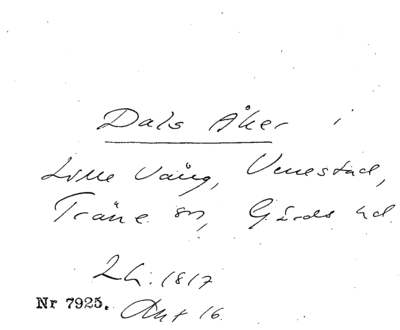 Dals Åker i
Lille Vång, Venestad,
Träne sn, Gärds hd.
Lh. 1817
Nr 7925. Akt 16.